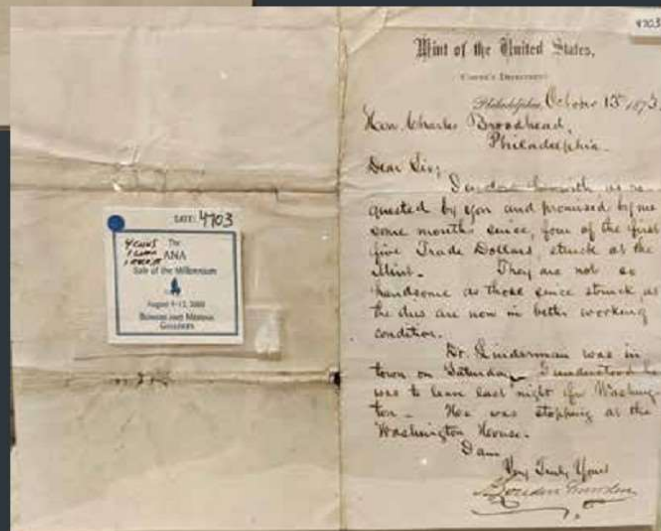 4703
Mint of the United States,
Coiner's Department
Philadelphia, October 13th 1873.
Hon. Charles Broadhead,
Philadelphia.
Dear Sir;
I enclose herewith as re-
quested by you and promised by me
some months since, four of the first
five Trade Dollars, struck at the
Mint. They are not so
handsome as those since struck, as
the dies are now in better working
condition.
Dr. Linderman was in
town on Saturday. I understood he
was to leave last night for Washing-
ton. He was stopping at the
Washington House.
I am
Very Truly Yours
A Loudon Snowden
DATE: 4703
4 COINS
The
ANA
Sale of the Millennium
August
BOWERS AND MERENA
GALLERIES